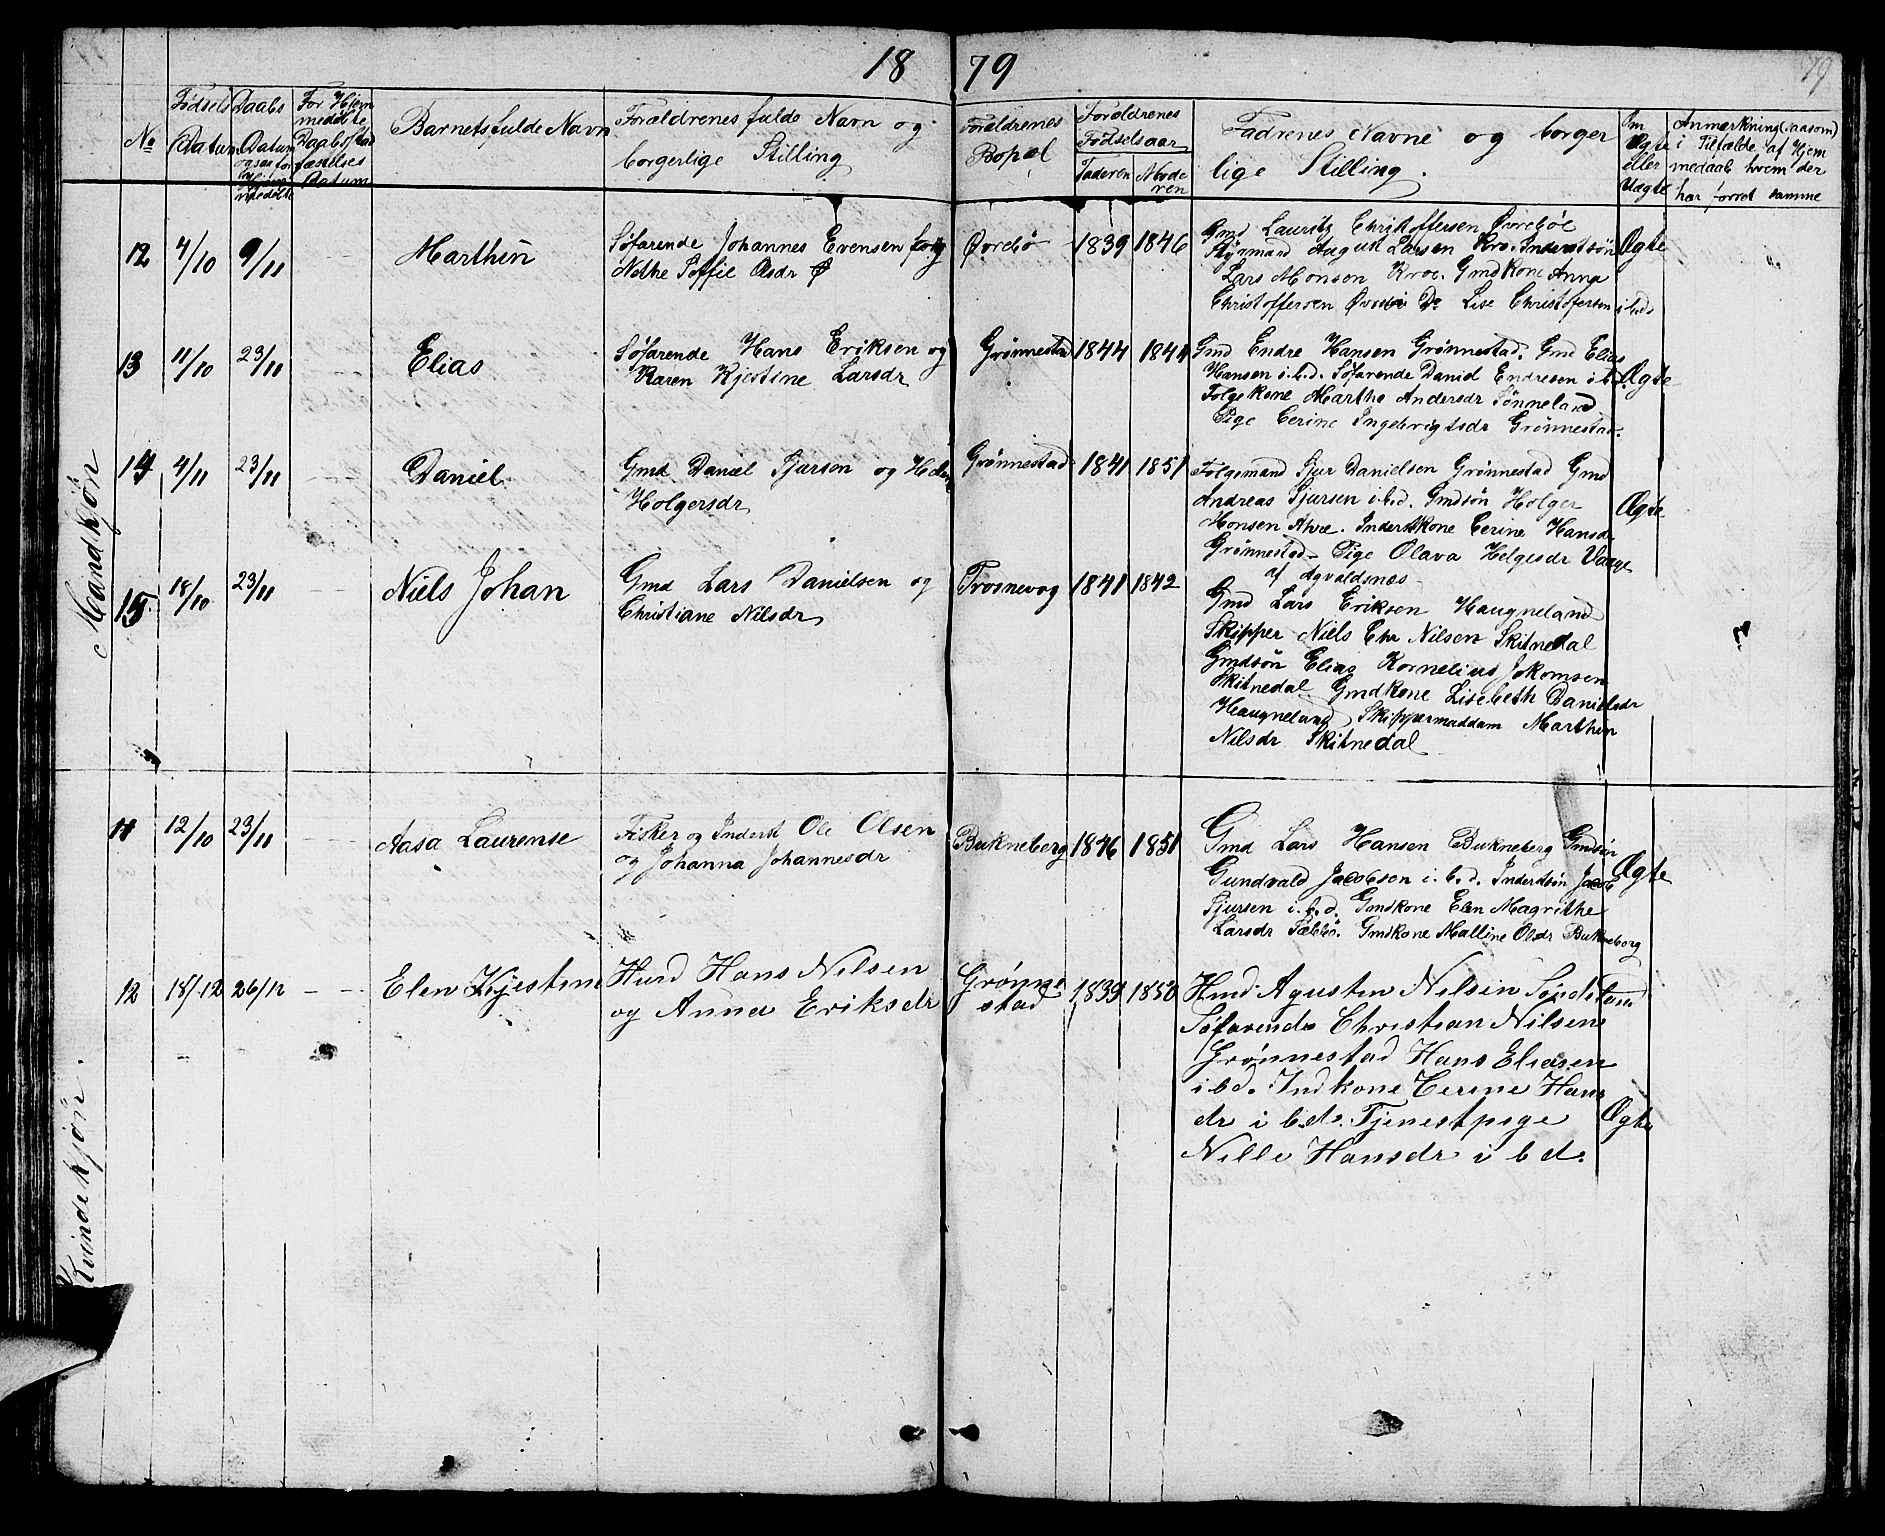 18 79
79
No
Fødsels Datum
Daabs Datum
For Hjem meddøbte Daabs Stad fæstelses Datum
Barnets fulde Navn
Forældrenes fulde Navn og
borgerlige Stilling
Forældrenes
Bopæl
Forældrenes
Fødselsaar
Faderen Moderen
Fadrenes Navne og borger
lige Stilling.
Om
Ægte
eller
Uægte
Anmærkning (saasom)
i Tilfælde af Hjem
medaab hvem der
har forret samme
Mandkjøn
12 4/10 9/11 Marthin
Søfarende Johannes Evensen og
Nethe Soffie Olsdr
Øvrebø 1839 1846
Gmd Lauritz Christoffersen Øvrebøe
Styrmand August Larsen Kro. Inderstsøn
Lars Monsen Kroe. Gmdkone Anna
Christoffersen Øvrebø Do Lise Christofersen i beds
Ægte
13 11/10 23/11 Elias
Søfarende Hans Eriksen og
Karen Kjestine Larsdr
Grønnestad 1844 1844
Gmd Endre Hansen Grønnestad. Gmd Elias
Hansen i.b.d. Søfarende Daniel Endresen i b.d.
Folgekone Marthe Andersdr Sønneland
Pige Cerine Ingebrigtsdr Grønnestad.
Ægte
14 4/11 23/11 Daniel
Gmd Daniel Sjursen og Helene
Holgersdr
Grønnestad 1841 1851
Folgemand Sjur Danielsen Grønnestad Gmd
Andreas Sjursen i.b.d. Gmdsøn Holger
Honsen Ahre. Inderstkone Cerine Hansdr
Grønnestad Pige Olava Helgesdr Vaage
af Agvaldsnæs
Ægte
15 18/10 23/11 Niels Johan
Gmd Lars Danielsen og
Christiane Nilsdr
Trosnevag 1841 1842
Gmd Lars Eriksen Haugneland
Skipper Niels Chr Nilsen Skitnedal
Gmdsøn Elias Kornelius Jokomsen
Skitnedal Gmdkone Lisebeth Danielsdr
Haugneland Skippermaddam Marthen
Nilsdr Skitnedal
Kvindekjøn.
11 12/10 23/11 Aasa Laurense
Fisker og Inderst Ole Olsen
og Johanna Johannesdr
Bukneberg 1846 1851
Gmd Lars Hansen Bukneberg Gmdsøn
Gundvald Jacobsen i.b.d. Inderstsøn Jacob
Sjursen i.b.d. Gmdkone Elen Magrithe
Larsdr Gmdkone Malline Olsdr Bukneberg
Ægte
12 18/12 26/12 Elen Kjestine
Husd Hans Nilsen
og Anna Eriksdr
Grønne
stad 1839 1850
Hmd. Agusten Nilsen Søndstum
Søfarende Christian Nilsen
Grønnestad Hans Eliasen
i b d. Indkone Cerine Hans
dr i b.d. Tjenestpige
Nille Hansdr i b d.
Ægte